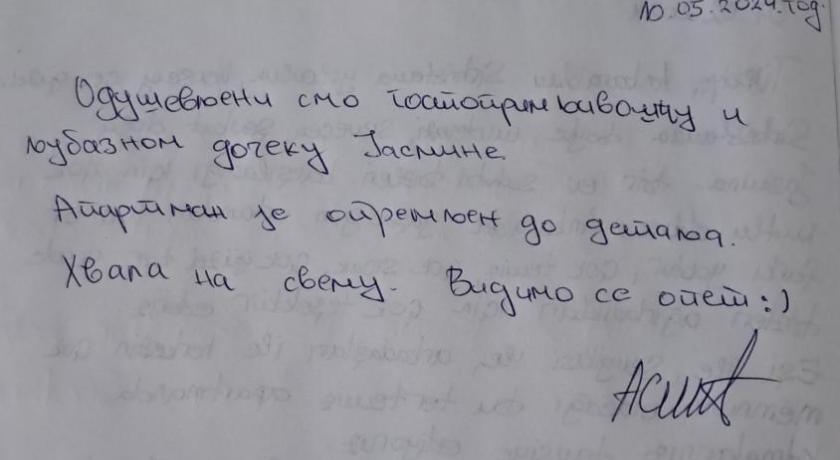 10.05.2024.год.
Одушевљени смо гостопримљивошћу и
љубазном дочеку Јасмине.
Апартман је опремљен до детаља.
Хвала на свему. Видимо се опет :)